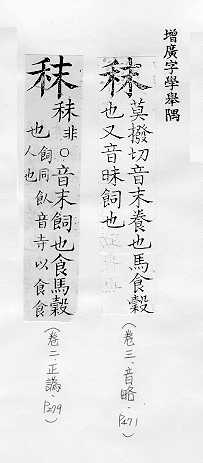 增廣字學舉隅
秣
莫撥切音末養也馬食穀
也又音昧飼也
(卷三、音略.P471)
秣
秼非○音末飼也食馬穀
也飼同飤音寺以食食
人也
(卷二.正譌.P279)